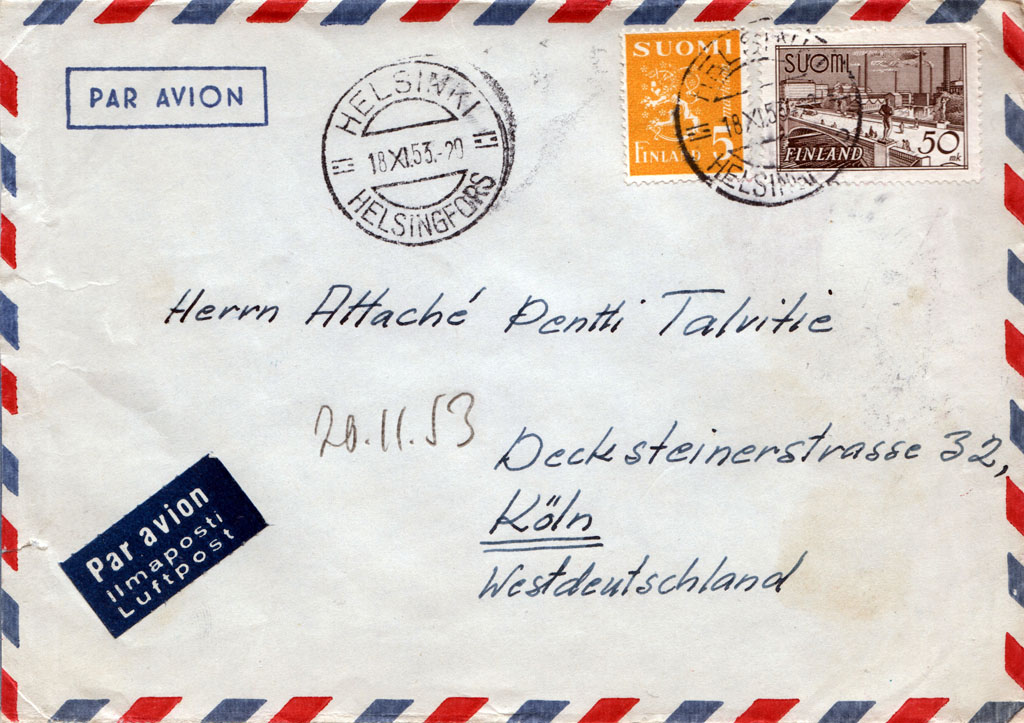 PAR AVION
HELSINKI
18.XI.53.-20
HELSINGFORS
SUOMI
FINLAND 5
SUOMI
FINLAND
50 mk
18.XI.53
HELSINKI
Herrn Attaché Pentti Talvitie
20.11.53
Decksteinerstrasse 32,
Köln
Westdeutschland
Par avion
Ilmaposti
Luftpost